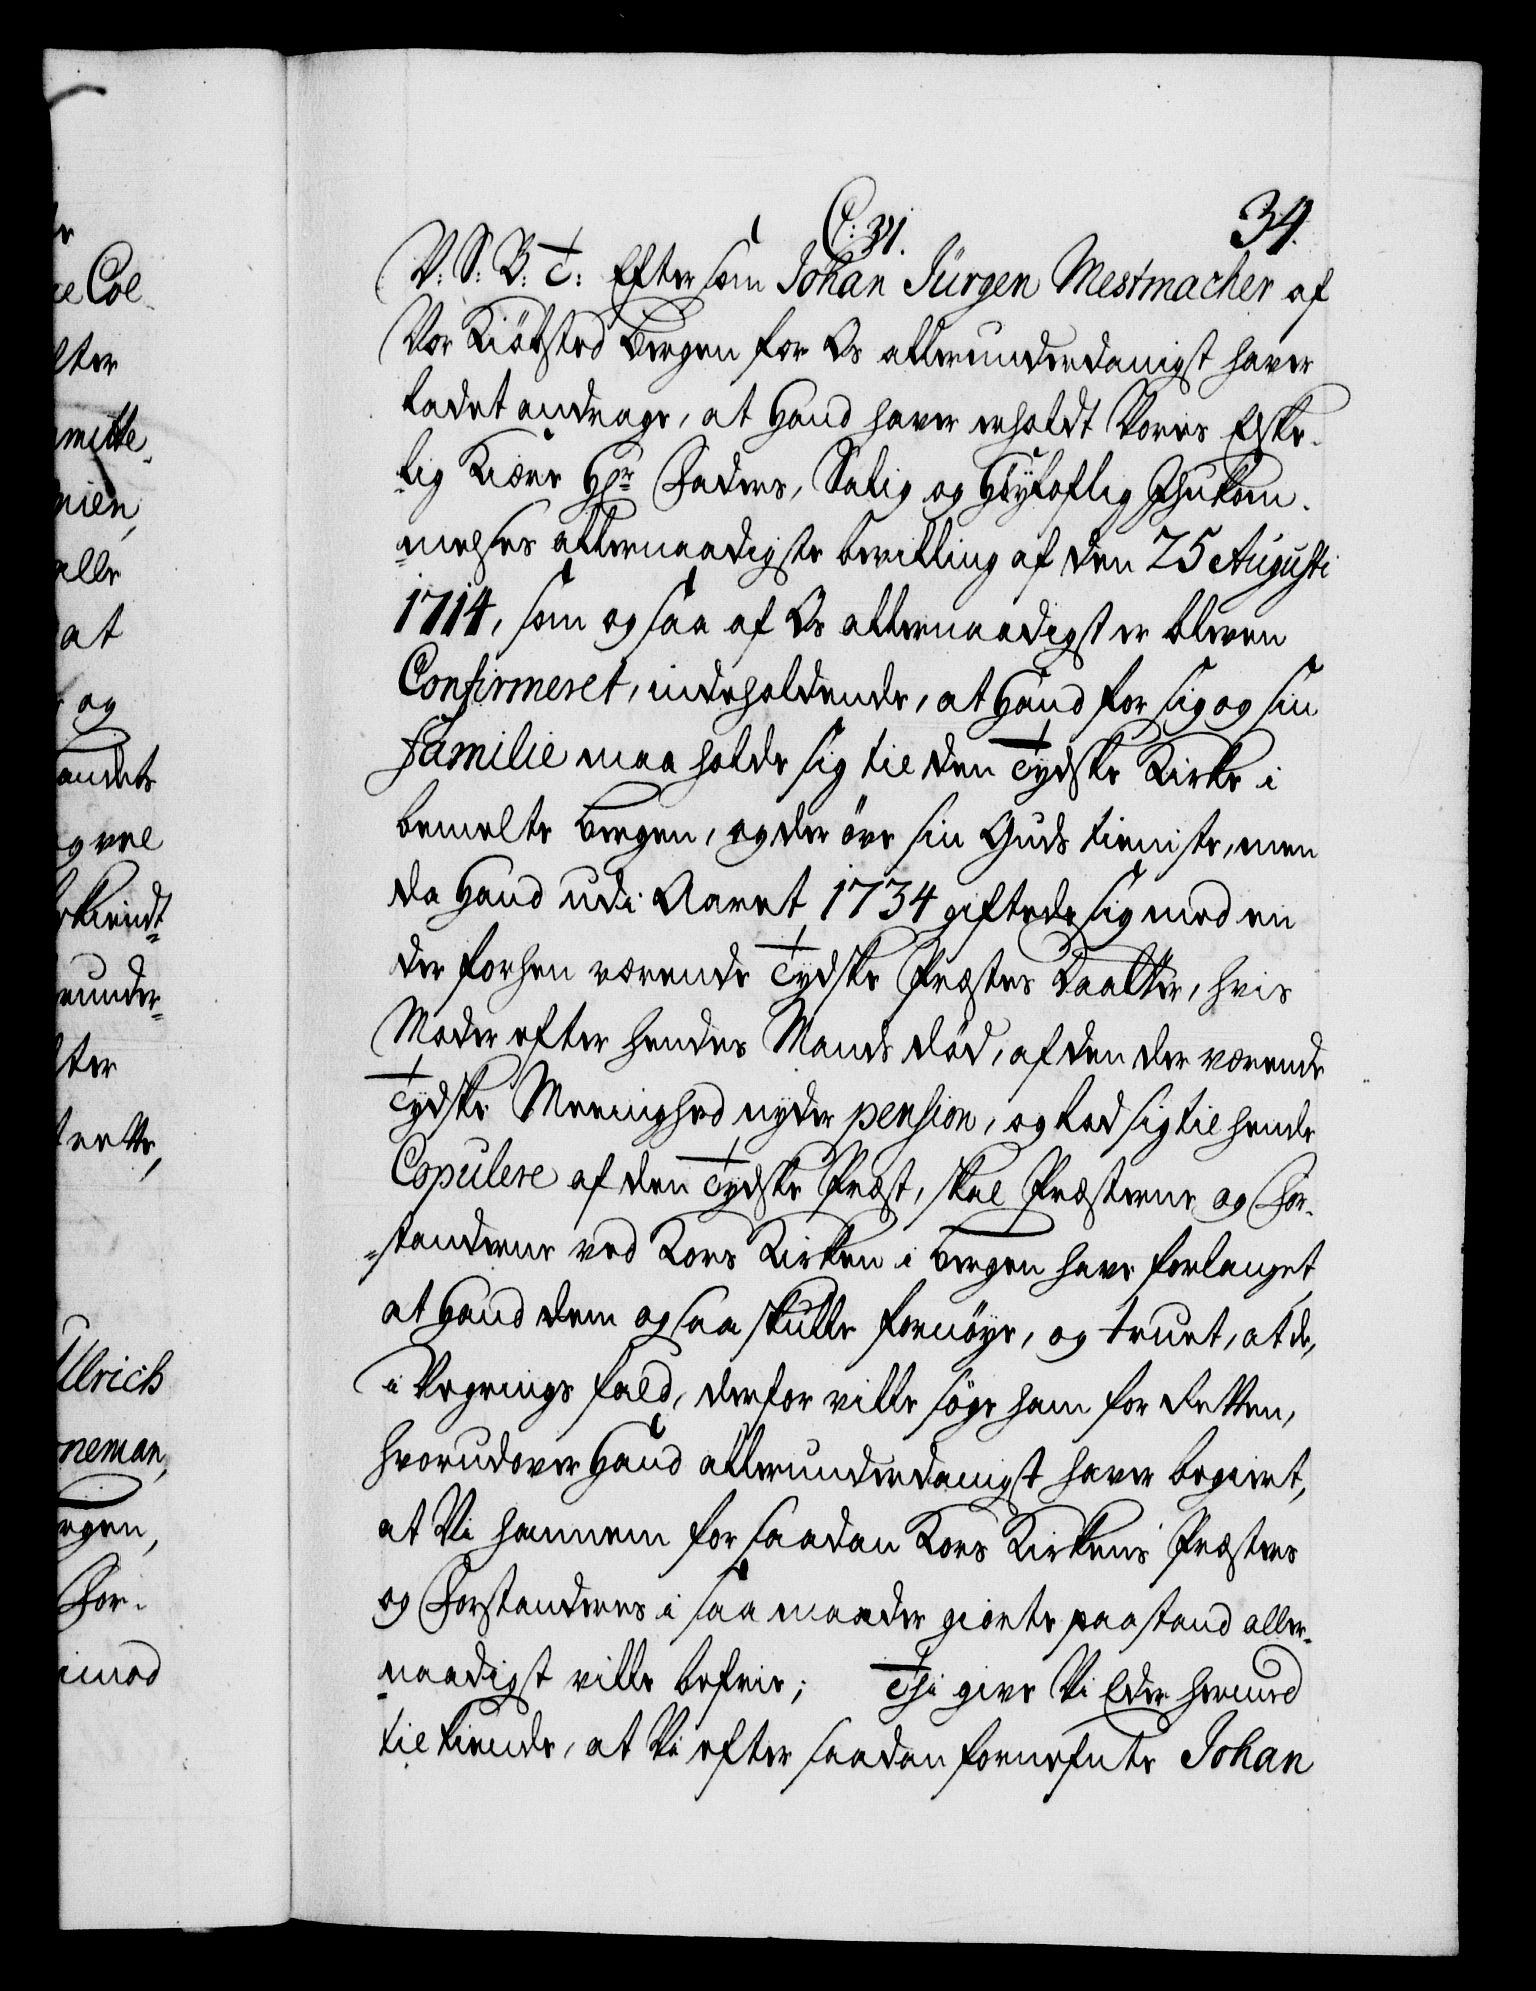 34.
C: 31.
V: S: B: T: Eftersom Johan Jürgen Mestmacher af
Vor Kiöbsted Bergen for Os allerunderdanigst haver
ladet andrage, at Hand haver erholdt Vores Elske-
-lig Kiære Hr. Faders, Salig og Höyloflig Ihukom-
-melses allernaadigste bevilling af den 25 Augusti
1714, som ogsaa af Os allernaadigst er bleven
Confirmeret, indeholdende, at Hand for sig og sin
Familie maa holde sig til den Tydske Kirke i
bemelte Bergen, og der öve sin Guds tieniste, men
da Hand udi Aaret 1734 giftede sig med en
der forhen værende Tydske Præstes Daatter, hvis
Moder efter hendes Mands död, af den der værende
Tydske Meenighed nyder pension, og lod sig til hende
Copulere af den Tydske Præst, skal Præsterne og For-
-standerne ved Kors Kirken i Bergen have forlanget,
at Hand dem ogsaa skulle fornöye, og truet, at de,
i Vegrings fald, derfor ville söge ham for Retten,
hvorudover Hand allerunderdanigst haver begiert,
at Vi hannem for saadan Kors Kirkens Præsters
og Forstanderes i saa maader giorte paastand aller-
-naadigst ville befrie; Thi give Vi Eder hermed
tilkiende, at Vi efter saadan fornefnte Johan